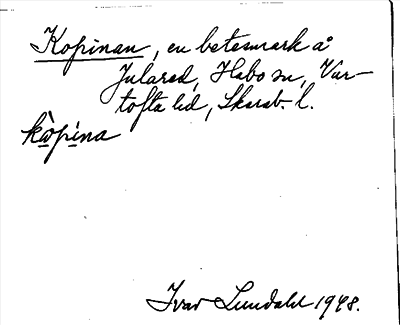 Kopinan, en betesmark å
Julared, Habo sn, Var-
tofta hd, Skarab. l.
kòpina
Ivar Lundahl 1948.